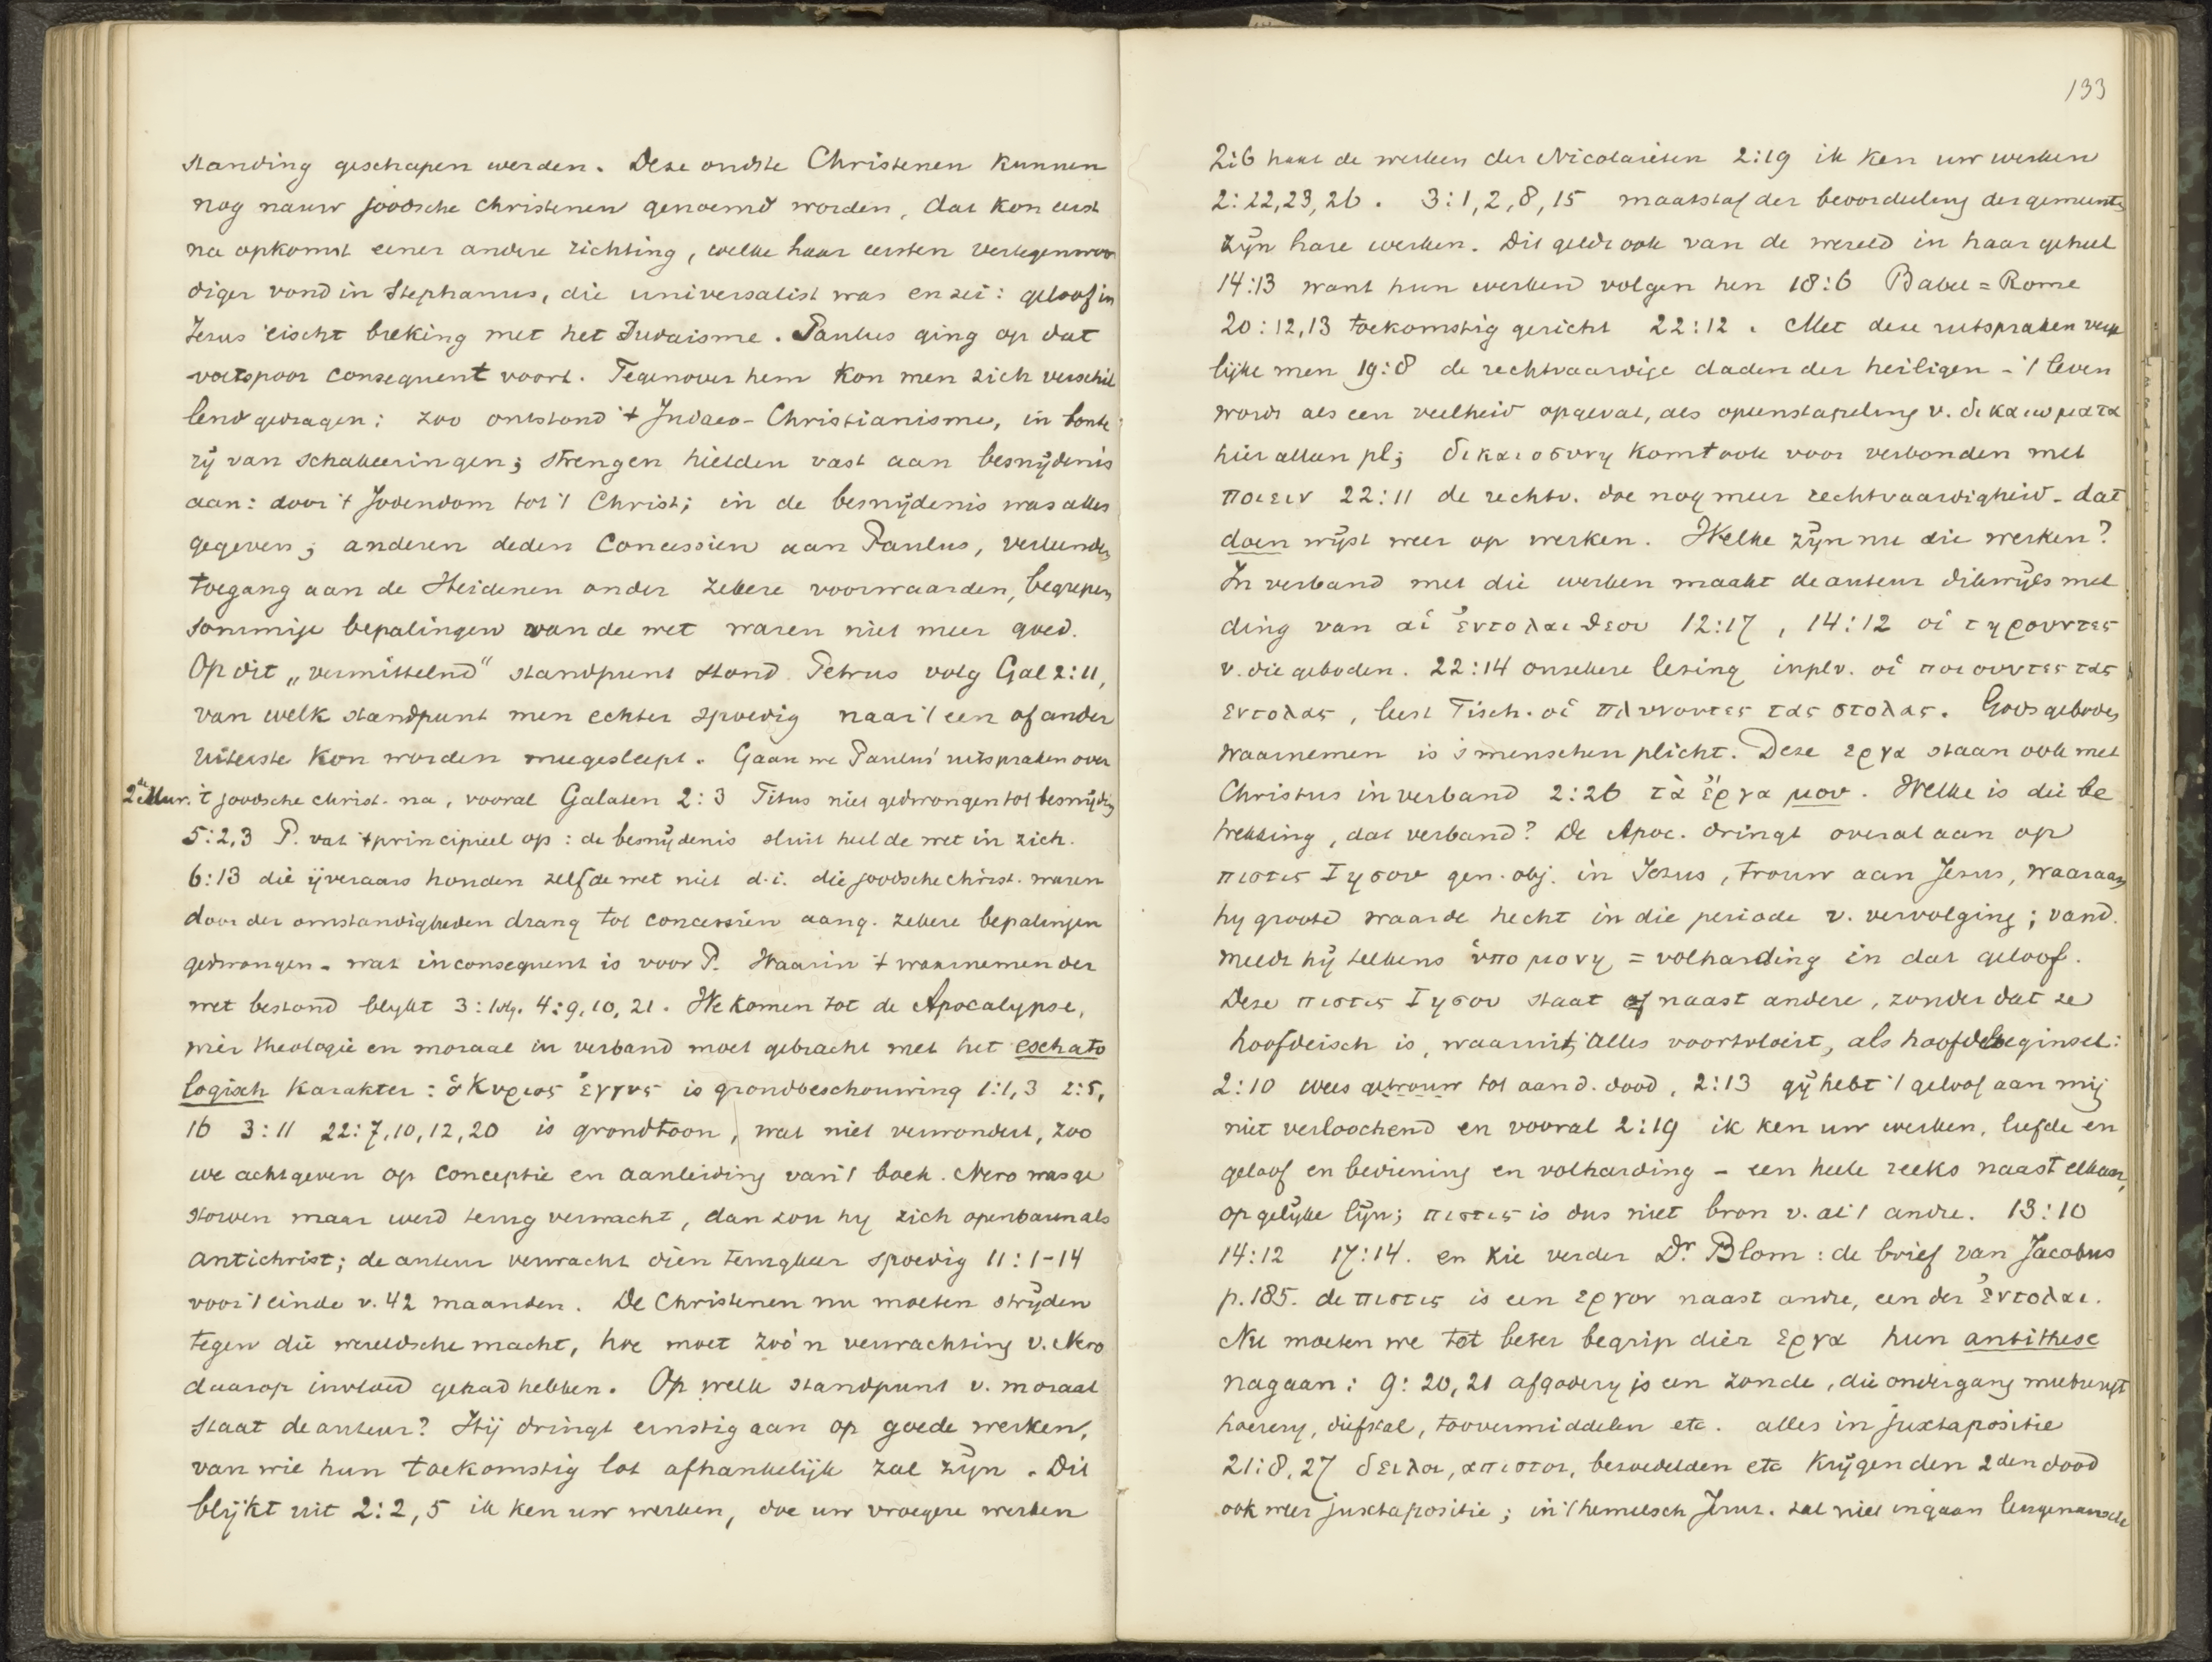 standing geschapen werden. Deze oudste Christenen kunnen
nog nauw joodsche christenen genoemd worden, dat kon eerst
na opkomst eener andere richting, welke haar eersten vertegenwoor
diger vond in Stephanus, die universalist was en zei: geloof in
Jezus eischt breking met het Judaisme. Paulus ging op dat
voetspoor consequent voort. Tegenover hem kon men zich verschil
lend gedragen: zoo ontstond 't Judaeo-Christianisme, in bonte
rij van schakeeringen; strengen hielden vast aan besnijdenis
aan: door 't Jodendom tot 't Christ; in de besnijdenis was alles
gegeven; anderen deden concessien aan Paulus, verleenden
toegang aan de Heidenen onder zekere voorwaarden, begrepen
sommige bepalingen van de wet waren niet meer goed.
Op dit „vermittelnd" standpunt stond Petrus volg Gal 2:11,
van welk standpunt men echter spoedig naar 't een of ander
uiterste kon worden meegesleept. Gaan we Paulus' uitspraken over
2de uur. 't joodsche christ. na, vooral Galaten 2:3 Titus niet gedwongen tot besnijding
5:2,3 P. vat 't principieel op: de besnijdenis sluit heel de wet in zich.
6:13 die ijveraars houden zelf de wet niet d.i. die joodsche christ. waren
door der omstandigheden drang tot concessien aang. zekere bepalingen
gedwongen - wat inconsequent is voor P. Waarin 't waarnemen der
wet bestond blijkt 3:1vlg. 4:9,10,21. We komen tot de Apocalypse,
wier theologie en moraal in verband moet gebracht met het eschato
logisch karakter: ὁ Κυριος ἐγγυς is grondbeschouwing 1:1,3 2:5,
16 3:11 22:7,10,12,20 is grondtoon, wat niet verwondert, zoo
we achtgeven op conceptie en aanleiding van 't boek. Nero was ge
storven maar werd terug verwacht, dan zou hy zich openbaren als
antichrist; de auteur verwacht dien terugkeer spoedig 11:1-14
voor 't einde v. 42 maanden. De Christenen nu moeten strijden
tegen die wereldsche macht, hoe moet zoo'n verwachting v. Nero
daarop invloed gehad hebben. Op welk standpunt v. moraal
staat de auteur? Hij dringt ernstig aan op goede werken,
van wie hun toekomstig lot afhankelijk zal zijn. Dit
blijkt uit 2:2,5 ik ken uw werken, doe uw vroegere werken
133
2:6 haat de werken der Nicolaieten 2:19 ik ken uw werken
2:22,23,26. 3:1,2,8,15 maatstaf der beoordeeling der gemeente
zijn hare werken. Dit geldt ook van de wereld in haar geheel
14:13 want hun werken volgen hen 18:6 Babel = Rome
20:12,13 toekomstig gericht 22:12. Met deze uitspraken verge
lijke men 19:8 de rechtvaardige daden der heiligen - 't leven
wordt als een veelheid opgevat, als opeenstapeling v. δικαιωματα
hier alleen pl; δικαιοσυνη komt ook voor verbonden met
ποιειν 22:11 de rechtv. doe nog meer rechtvaardigheid - dat
doen wijst weer op werken. Welke zijn nu die werken?
In verband met die werken maakt de auteur dikwijls mel
ding van αἱ ἐντολαι θεου 12:17, 14:12 οἱ τηρουντες
v. die geboden. 22:14 onzekere lezing inplv. οἱ ποιουντες τας
εντολας, leest Tisch. οἱ πλυνοντες τας στολας. Gods geboden
waarnemen is 's menschen plicht. Deze εργα staan ook met
Christus in verband 2:26 τὰ ἔργα μου. Welke is die be
trekking, dat verband? De Apoc. dringt overal aan op
πιστις Ιησου gen. obj. in Jezus, trouw aan Jezus, waaraan
hy groote waarde hecht in die periode v. vervolging; vand.
meldt hij telkens ὑπομονη = volharding in dat geloof.
Deze πιστις Ιησου staat naast andere, zonder dat ze
hoofdeisch is, waaruit alles voortvloeit, als hoofdbeginsel:
2:10 wees getrouw tot aan d. dood, 2:13 gij hebt 't geloof aan mij
niet verloochend en vooral 2:19 ik ken uw werken, liefde en
geloof en bediening en volharding - een heele reeks naast elkaar,
op gelijke lijn; πιστις is dus niet bron v. al 't andre. 13:10
14:12 17:14. en zie verder Dr Blom: de brief van Jacobus
p.185. de πιστις is een εργον naast andre, een der ἐντολαι.
Nu moeten we tot beter begrip dier εργα hun antithese
nagaan: 9:20,21 afgodery is een zonde, die ondergang meebrengt
hoerery, diefstal, toovermiddelen etc. alles in juxtapositie
21:8,27 δειλοι, απιστοι, bezoedelden etc krijgen den 2den dood
ook weer juxtapositie; in 't hemelsch Jeruz. zal niet ingaan